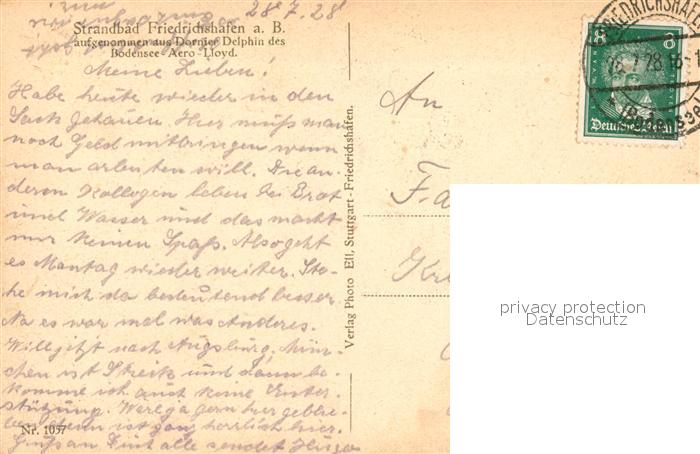 28.7.28
Strandbad Friedrichshafen a. B.
aufgenommen aus Dornier Delphin des
Bodensee-Aero-Lloyd.
Meine Lieben!
Habe heute wieder in den
Sack gehauen. Hier muß man
noch Geld mitbringen wenn
man arbeiten will. Die an-
deren Kollegen leben bei Brot
und Wasser und das macht
mir keinen Spaß. Also geht
es Montag wieder weiter. Ste-
he mich da bedeutend besser.
Na es war mal was Anderes.
Will jetzt nach Augsburg. Mün-
chen ist Streik und dann be-
komme ich auch keine Unter-
stützung. Wäre ja gern hier geblie-
ben denn ist ganz herrlich hier.
Gruß an alle sendet
Nr. 1057
Verlag Photo Ell, Stuttgart-Friedrichshafen.
An
F
Kre
FRIEDRICHSHAFEN
28.7.28
(BODENSEE)
8 8
Deutsches Reich
privacy protection
Datenschutz